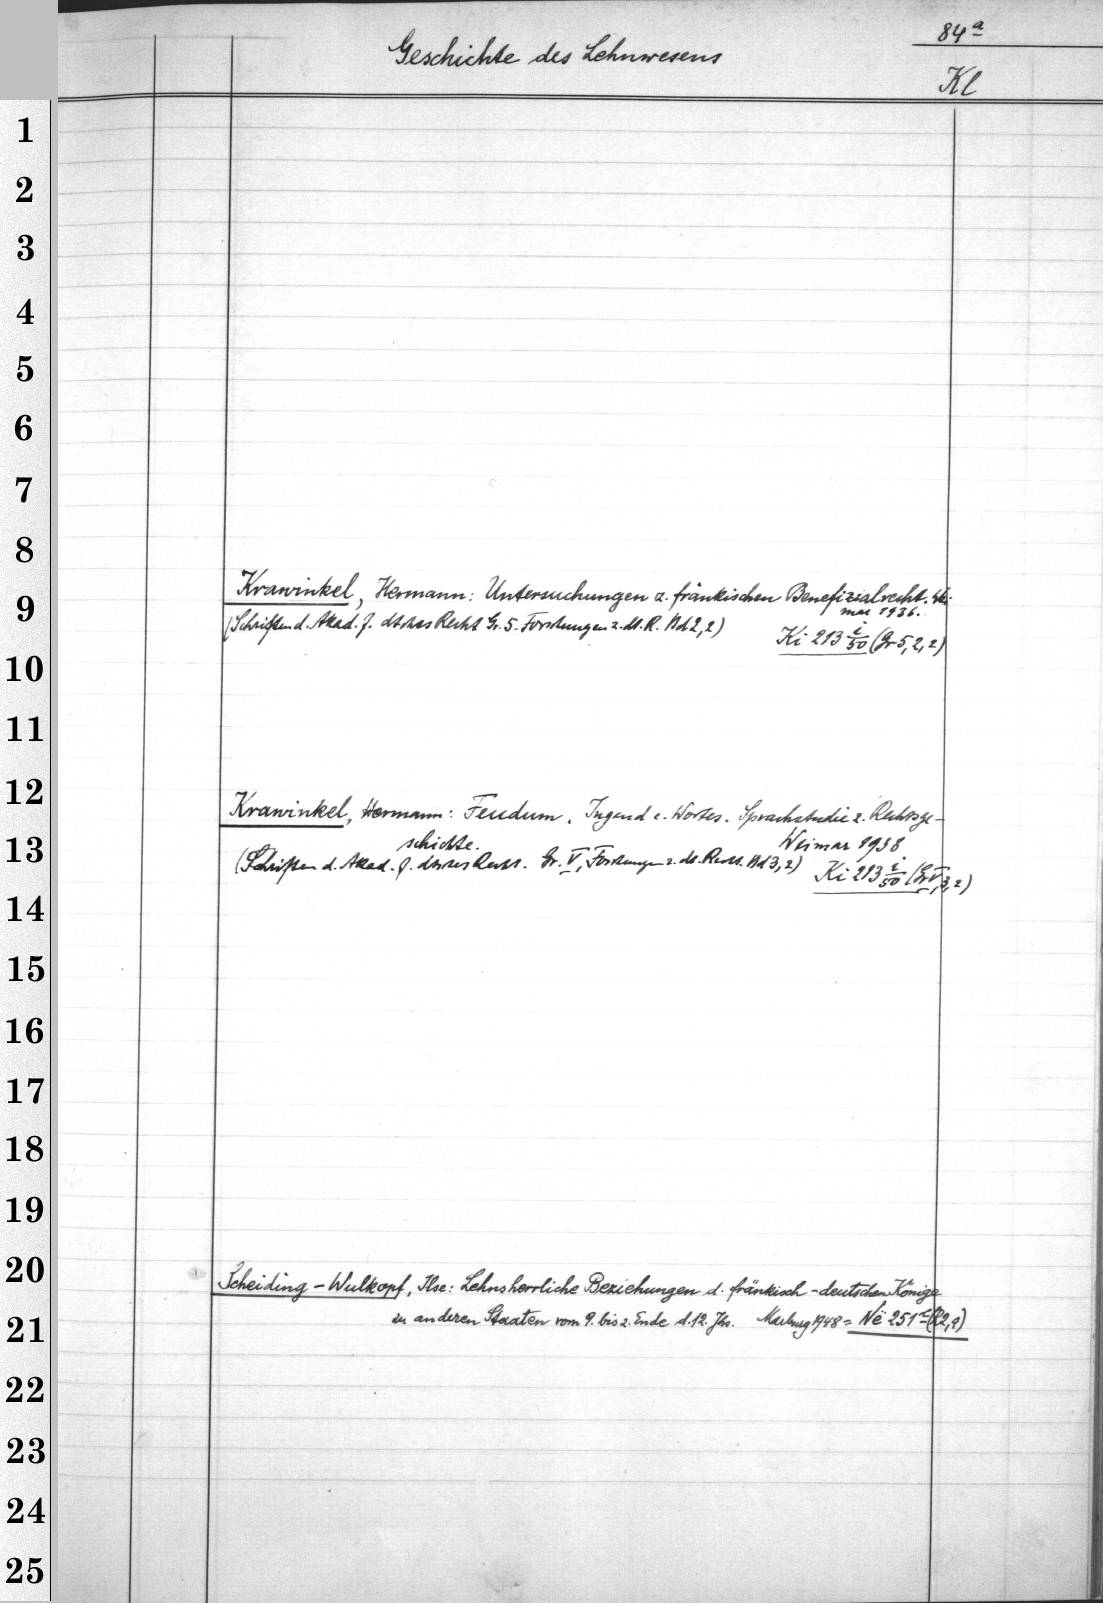 84a
Geschichte des Lehnwesens
Kl
1
2
3
4
5
6
7
8
9
Krawinkel, Hermann: Untersuchungen z. fränkischen Benefizialrecht. Wei-
mar 1936.
(Schriften d. Akad. f. dtsches Recht Gr. 5. Forschungen z. dt. R. Bd 2,2)
Ki 213 i/50 (Gr 5,2,2)
10
11
12
Krawinkel, Hermann: Feudum. Jugend e. Wortes. Sprachstudie z. Rechtsge-
schichte. Weimar 1938
13
(Schriften d. Akad. f. dtsches Recht. Gr. V, Forschungen z. dt. Recht. Bd 3,2)
Ki 213 i/50 (Gr V,3,2)
14
15
16
17
18
19
20
Scheiding-Wulkopf, Ilse: Lehnsherrliche Beziehungen d. fränkisch-deutschen Könige
zu anderen Staaten vom 9. bis z. Ende d. 12. Jhs. Marburg 1948 = Në 251 (2,9)
21
22
23
24
25